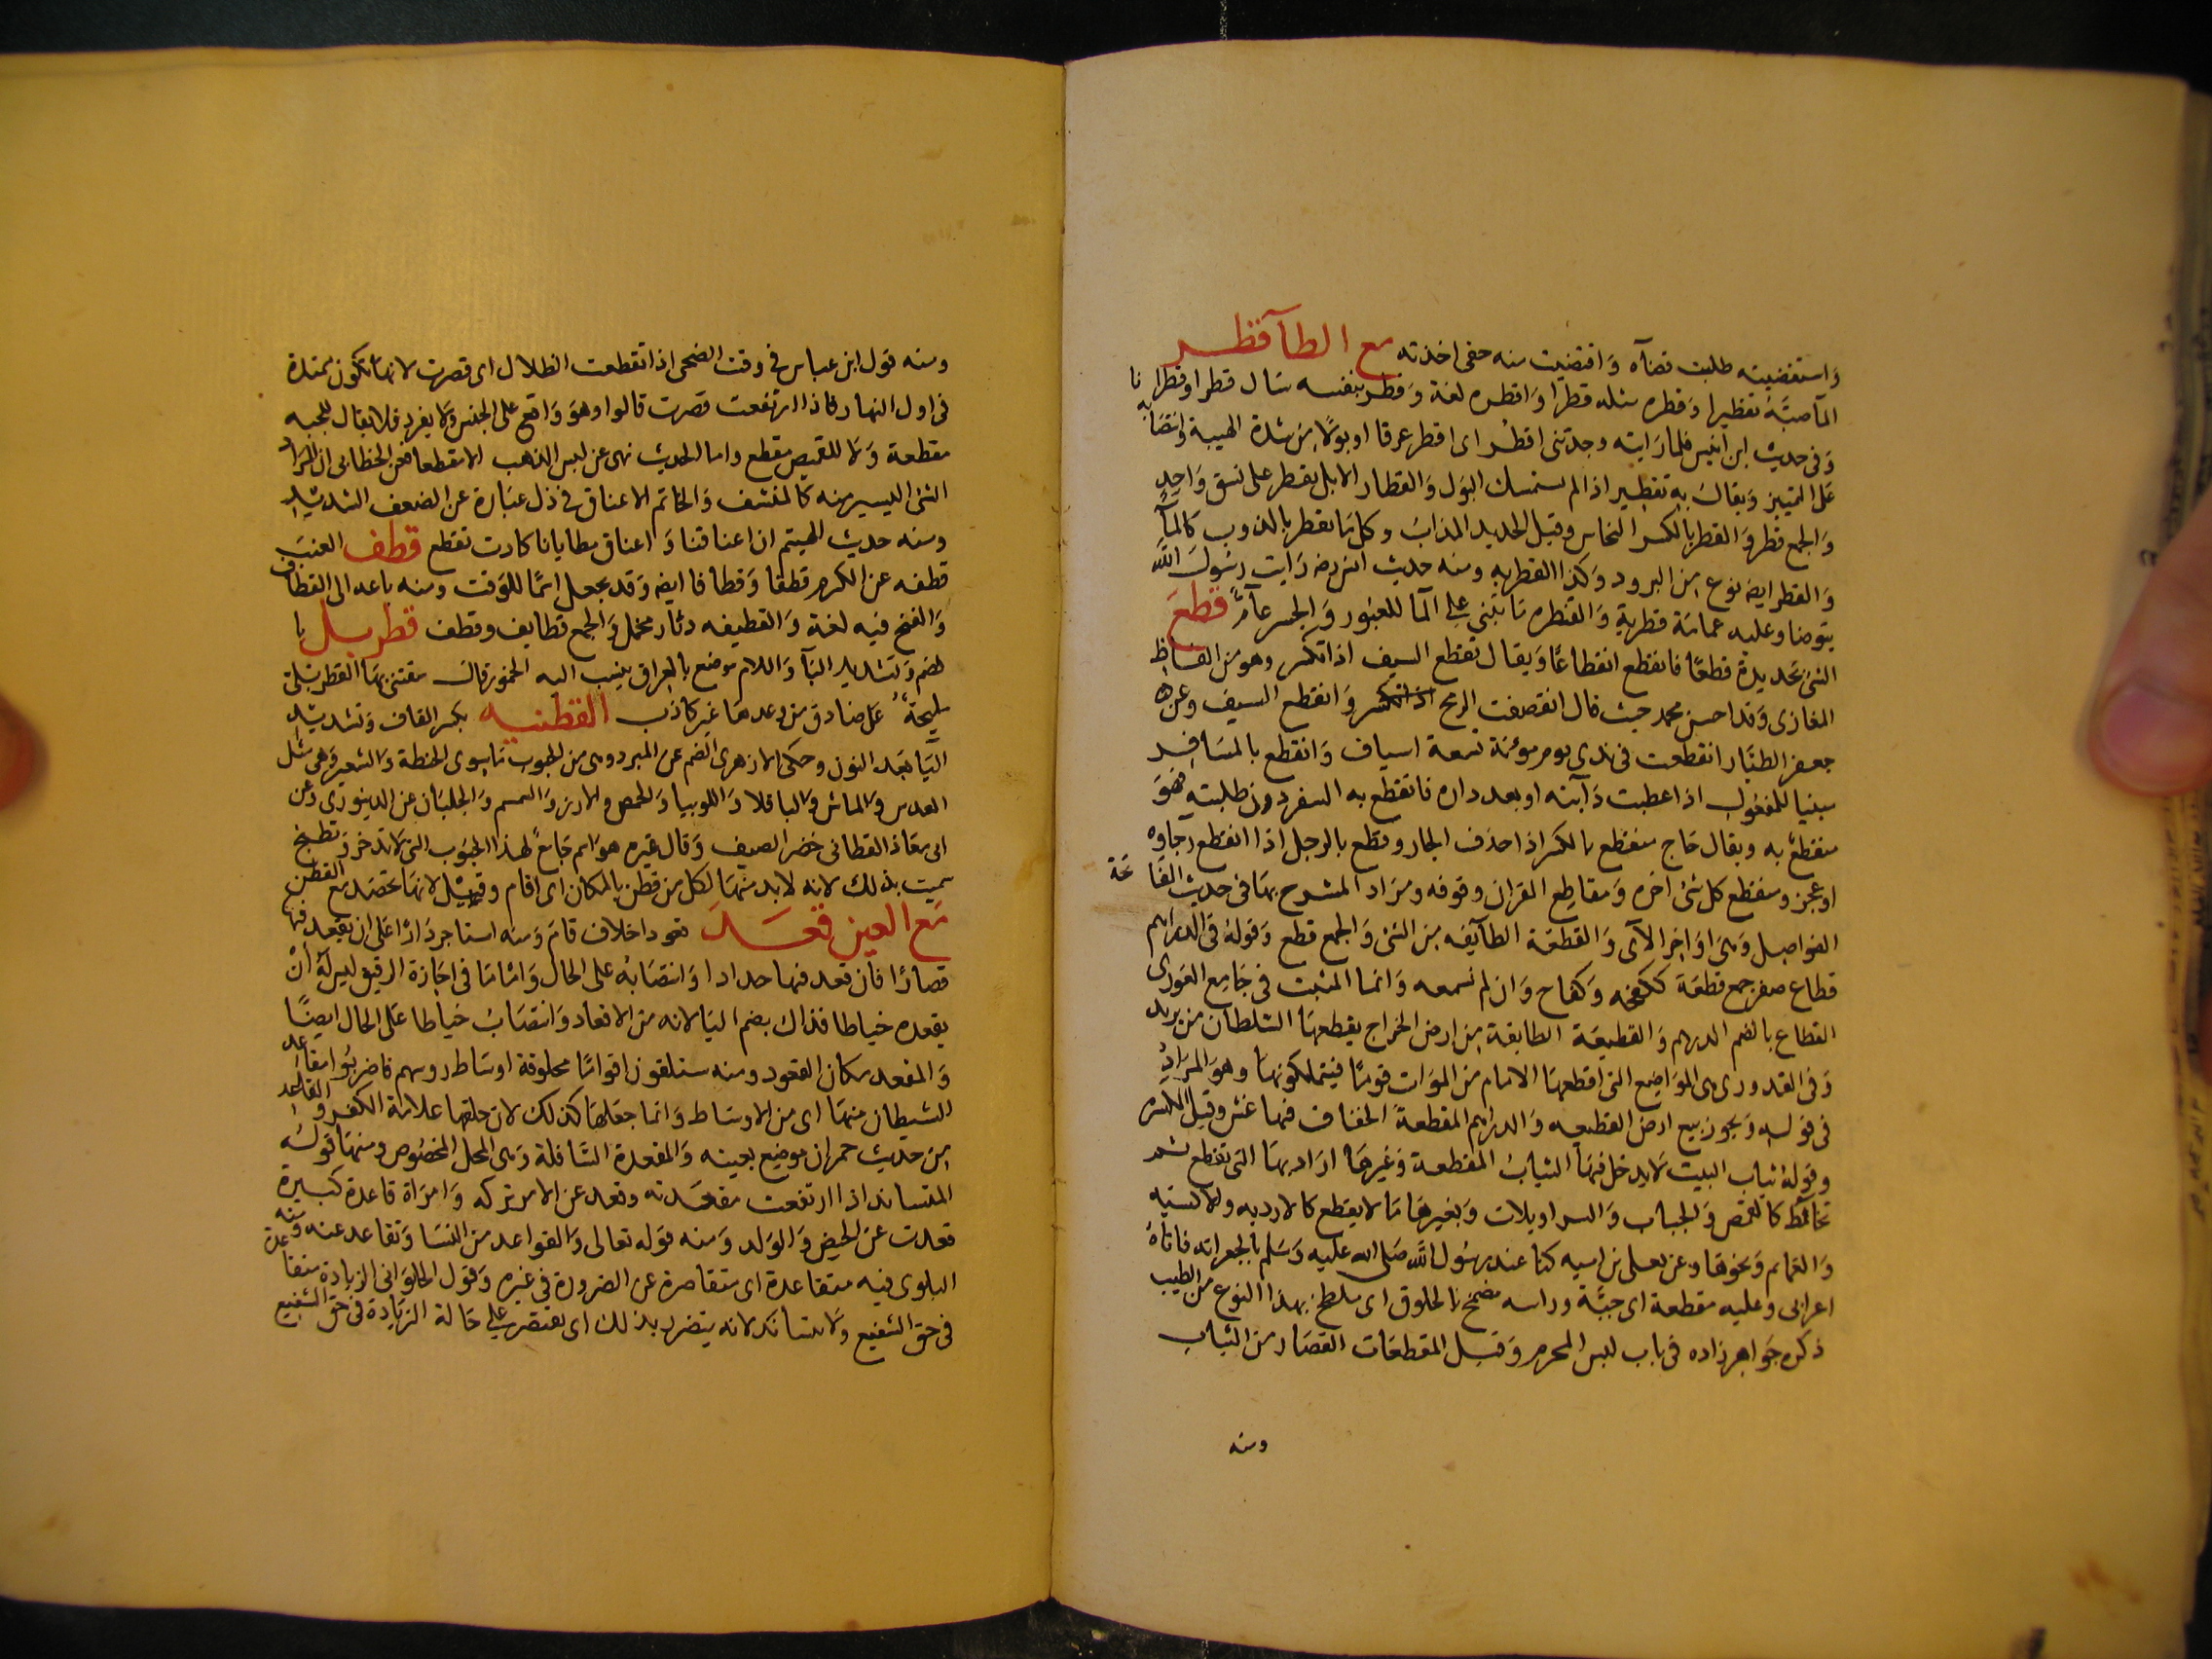 واستقضيته طلبت قضآه واقتضيت منه حقى اخذته مع الطآ قطر
المآ صبَّهُ تقطيرا وقطره مثله قطرا واقطره لغة وقطر بنفسه سال قطرا وقطرانا
وفى حديث ابن انيس فلما رايته وجدتنى اقطُر اى اقطر عرقا او بولا من شدة الهيبة وانتصابه
على التمييز ويقال به تقطير اذا لم يستمسك البول والقطار الابل تقطر على نسق واحد
والجمع قطر والقطر بالكسر النحاس وقيل الحديد المذاب وكل ما يقطر بالذوب كالمآ
والقطر ايضا نوع من البرود وكذا القطريه ومنه حديث انس رضه رايت رسول الله
يتوضا وعليه عمامة قطرية والقنطره ما تبنى على المآ للعبور والجسر عآمٌ قطع
الشئ بحديدة قطعًا فانقطع انقطاعًا ويقال تقطع السيف اذا تكسر وهو من الفاظ
المغازى وقد احسن محمد حيث قال انقصفت الرمح وانقطع السيف وعن
جعفر الطيار انقطعت فى يدى يوم موتة تسعة اسياف وانقطع بالمسافر
مبنيا للمفعول اذا عطبت دآبته او بعد داره فانقطع به السفر دون طلبته فهو
منقطع به ويقال حاج منقطع بالكسر اذا حذف الجار وقطع بالرجل اذا انقطع رجاوه
او عجز ومنقطع كل شئ اخره ومقاطع القران وقوفه ومراد المشرح بها فى حديث الفاتحة
الفواصل وهى اواخر الآى والقطعة الطآيفه من الشئ والجمع قطع وقوله فى الدراهم
قطاع صفر جمع قطعة كلقحه ولقاح وان لم نسمعه وانما المثبت فى جامع الغورى
القطاع بالضم الدرهم والقطيعة الطايفة من ارض الخراج يقطعها السلطان من يريد
وفى القدورى هى المواضع التى اقطعها الامام من الموات قوما فيتملكونها وهو المراد
فى قوله ويجوز بيع ارض القطيعه والدراهم المقطعة الخفاف فيها غش وقيل المكسره
وقوله ثياب البيت لا يدخل فيها الثياب المقطعة وغيرها اراد بها التى تقطع ثم
تخاط كالقمص والجباب والسراويلات وبغيرها ما لا يقطع كالارديه والاكسيه
والعمايم ونحوها وعن يعلى بن اميه كنا عند رسول الله صلى الله عليه وسلم بالجعرانه فاتاه
اعرابى وعليه مقطعة اى جبة وراسه مضمخ بالخلوق اى ملطخ بهذا النوع من الطيب
ذكره خواهرزاده فى باب لبس المحرم وقيل المقطعات القصار من الثياب
ومنه
ومنه قول ابن عباس فى وقت الضحى اذا تقطعت الظلال اى قصرت لانها تكون ممتدة
فى اول النهار فاذا ارتفعت قصرت قالوا وهو واقع على الجنس ولا يفرد فلا يقال للجبه
مقطعة ولا للقميص مقطع واما الحديث نهى عن لبس الذهب الا مقطعا فعن الخطابى ان المراد
الشئ اليسير منه كالشنف والخاتم الاعناق فى ذل عبارة عن الضعف الشديد
ومنه حديث الهيثم ان اعناقنا واعناق مطايانا كادت تقطع قطف العنب
قطفه عن الكرم قطفا وقطافا ايضا وقد يجعل اسمًا للوقت ومنه باعه الى القطاف
والفتح فيه لغة والقطيفه دثار مخمل والجمع قطايف وقطف قطربل با
لضم وتشديد البآ واللام موضع بالعراق ينسب اليه الخمور قال سقتنى بها القطربلى
مليحة على صادق من وعدها غير كاذب القطنيه بكسر القاف وتشديد
اليآ بعد النون وحكى الازهرى الضم عن المبرد وهى من الحبوب ما سوى الحنطة والشعير وهى مثل
العدس والماش والباقلا واللوبيا والحمص والارز والسمسم والجلبان عن الدينورى وعن
ابى معاذ القطانى خضر الصيف وقال غيره هو اسم جامع لهذا الحبوب التى تدخر وتطبخ
سميت بذلك لانه لا بد منها لكل من قطن بالمكان اى اقام وقيل لانها تحصد مع القطن
مع العين قعد قعودا خلاف قام ومنه استاجر دارًا على ان يقعد فيها
قصارًا فان قعد فيها حدادا وانتصابه على الحال واما ما فى اجازة الرقيق ليس له ان
يقعده خياطا فذاك بضم اليا لانه من الاقعاد وانتصاب خياطا على الحال ايضًا
والمقعد مكان القعود ومنه ستلقون اقوامًا محلوقة اوساط روسهم فاضربوا مقاعد
الشيطان منها اى من الاوساط وانما جعلها كذلك لان حلقها علامة الكفر والقاعد
من حديث حمران موضع بعينه والمقعدة السافلة وهى المحل المخصوص ومنها قوله
المتساند اذا ارتفعت مقعدته وقعد عن الامر تركه وامراة قاعدة كبيرة
قعدت عن الحيض والولد ومنه قوله تعالى والقواعد من النسا وتقاعد عنه ومنه
البلوى فيه متقاعدة اى متقاصرة عن الضرورة فى غيره وقول الحلوانى الزيادة متقاعدة
فى حق الشفيع لانه يتضرر بذلك اى يقتصر على حالة الزيادة فى حق الشفيع